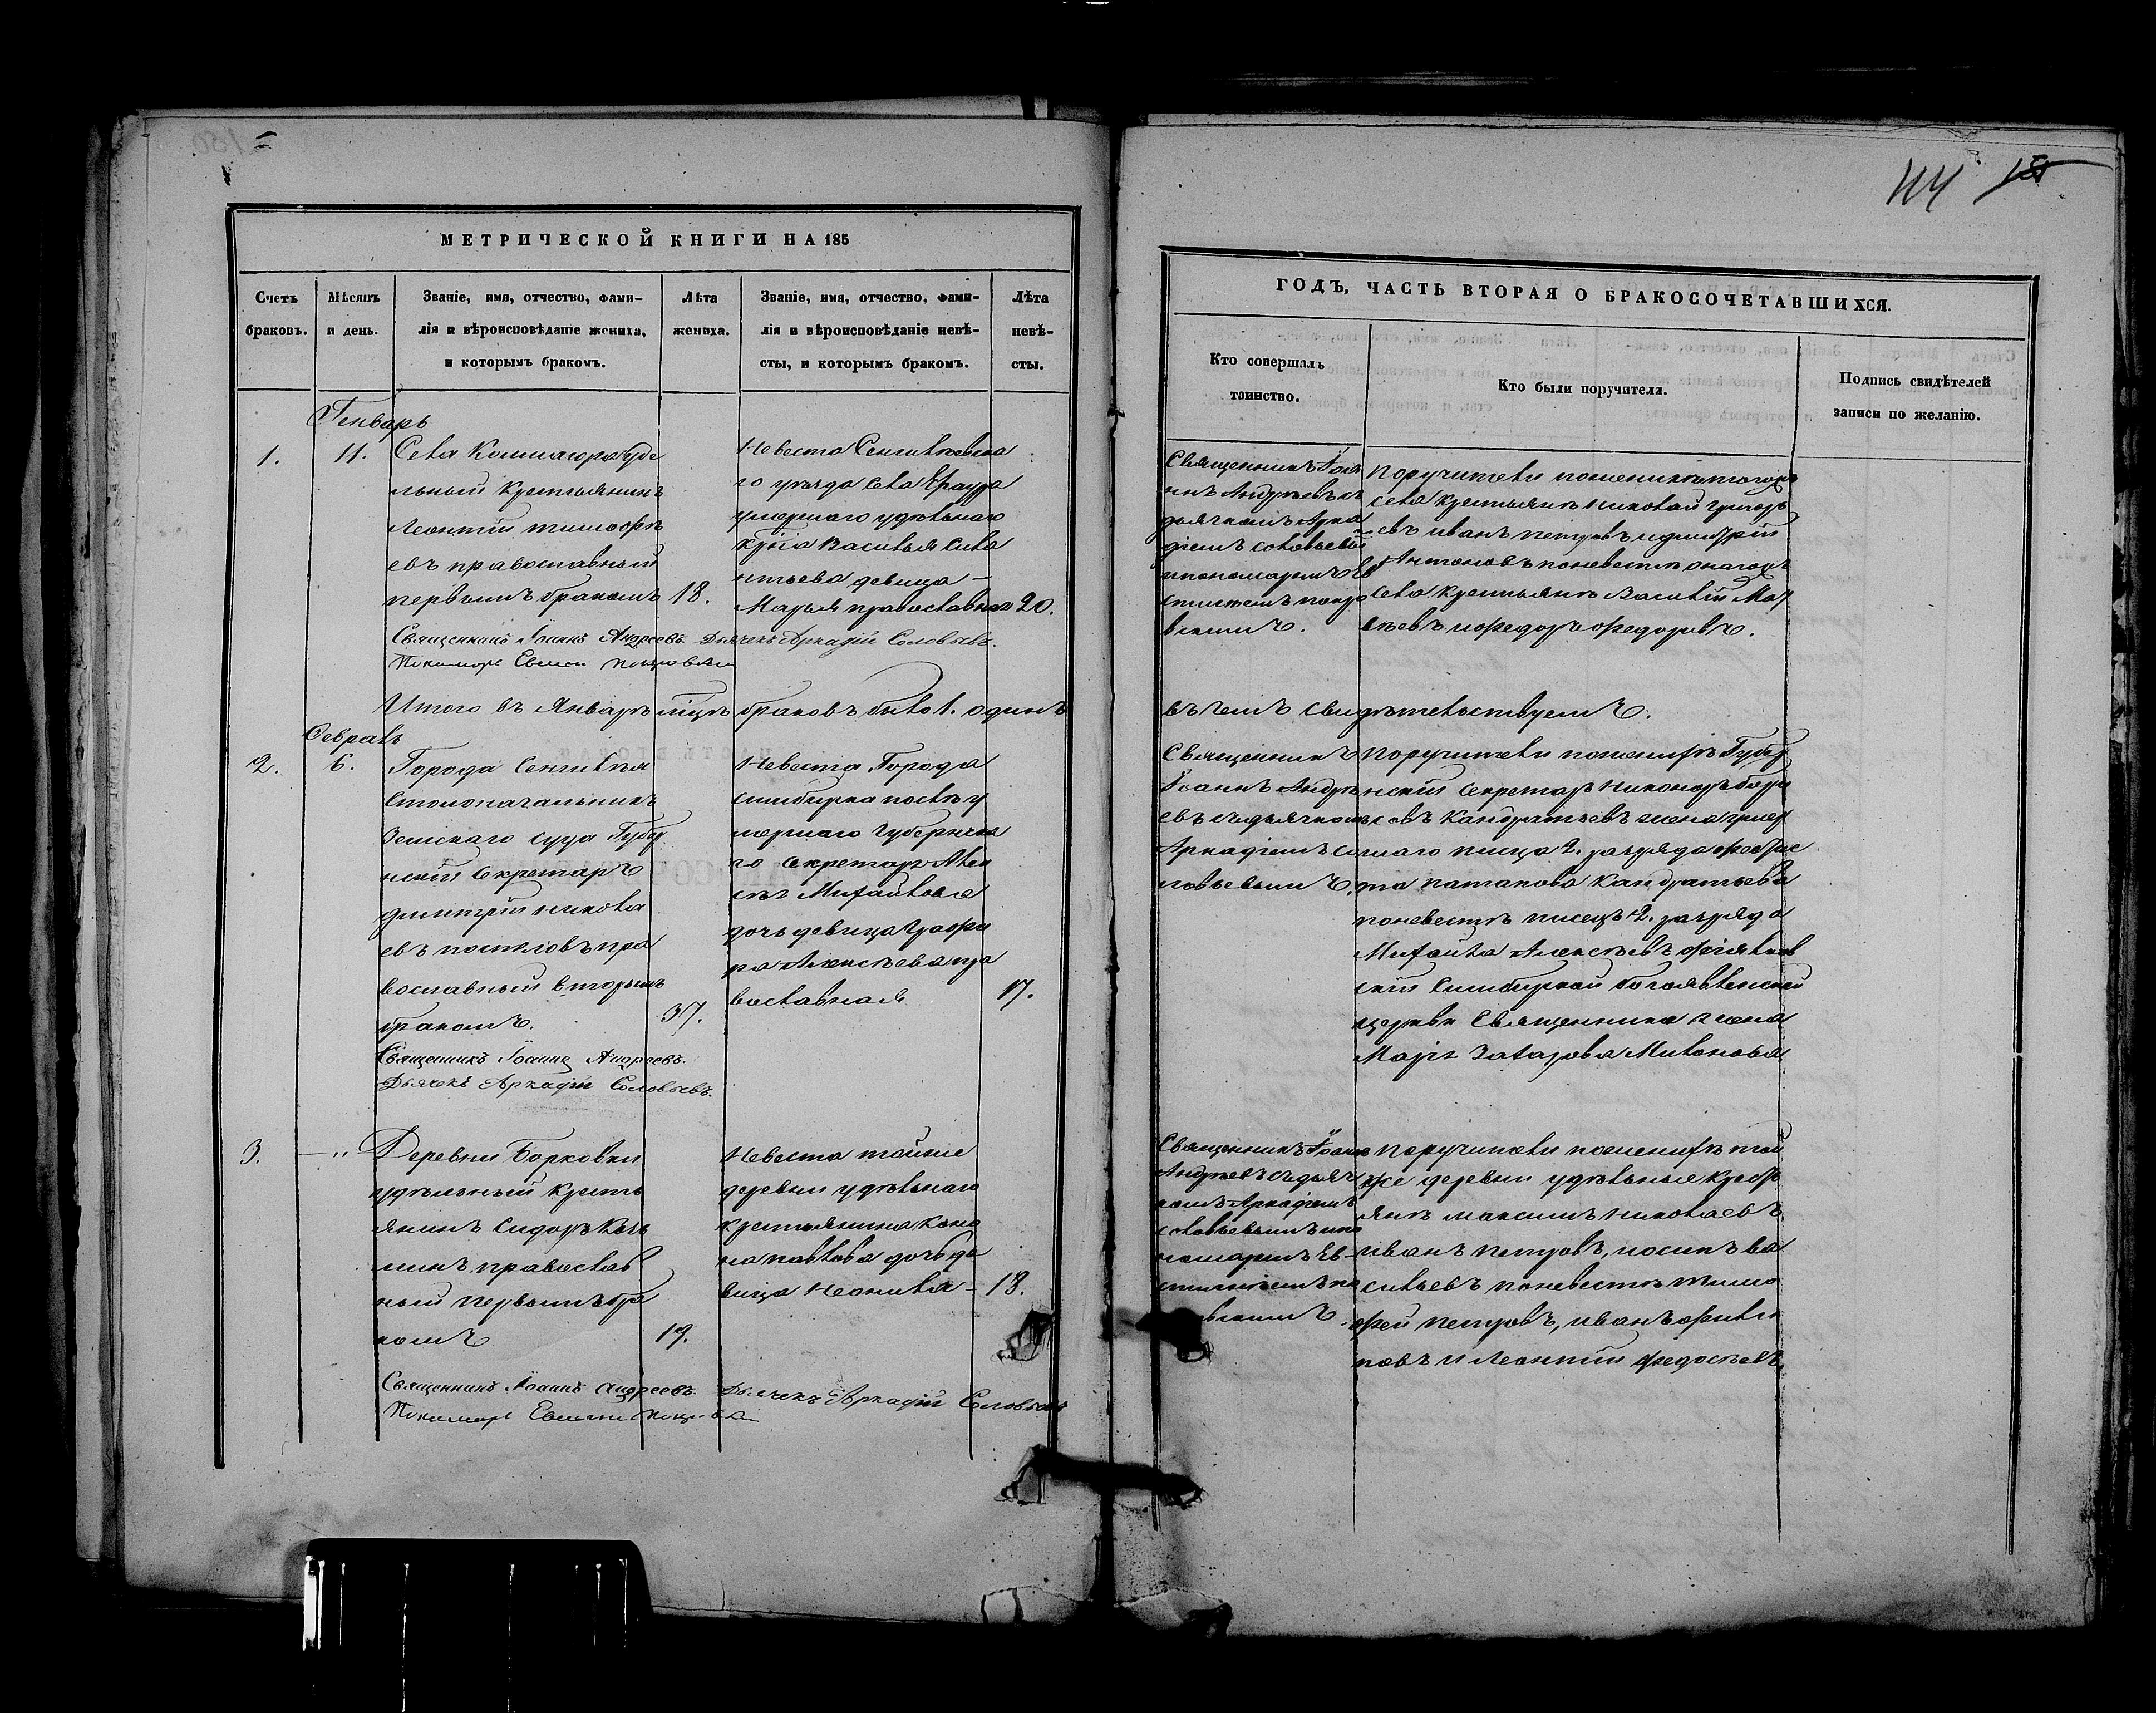 МЕТРИЧЕСКОЙ КНИГИ НА 185
Счетъ браковъ.
Мѣсяцъ и день.
Званіе, имя, отчество, фами-
лія и вѣроисповѣданіе жениха,
и которымъ бракомъ.
Лѣта
жениха.
Званіе, имя, отчество, фами-
лія и вѣроисповѣданіе невѣ-
сты, и которымъ бракомъ.
Лѣта
невѣ-
сты.
Генварь
1.
11.
Села уде
льный крестьянинъ
Леонтій тимофѣ
евъ православный
первымъ бракомъ
18.
Невеста Сенгилѣевска
го уѣзда села
умершаго удѣльнаго
Василья Сила
нтьева девица —
Марья православная
20.
Священникъ Іоаннъ Андреевъ. Дьячекъ Аркадій Соловьевъ.
Итого въ Январѣ мѣцѣ браковъ было 1. одинъ
Февраль
2.
6.
Города Сенгилея
столоначальникъ
Земскаго суда Губер
нскій Секретарь
Дмитрій никола
евъ пра
вославный вторымъ
бракомъ.
37.
Невеста Города
симбирка послѣ у
мершаго Губернска
го Секретаря Алек
сѣя Михайлова
дочь девица Глафи
ра Алексѣева пра
вославная
17.
Священникъ Іоаннъ Андреевъ.
Дьячекъ Аркадій Соловьевъ.
3.
— "
Деревни Борковки
удѣльный кресть
янинъ Сидоръ Козь
минъ православ
ный первымъ бра
комъ
19.
Невеста тойже
деревни удѣльнаго
крестьянина Коно
на павлова дочь де
вица Неонила —
18.
Священникъ Іоаннъ Андреевъ. Дьячекъ Аркадій Соловьевъ
ГОДЪ, ЧАСТЬ ВТОРАЯ О БРАКОСОЧЕТАВШИХСЯ.
Кто совершалъ
таинство.
Кто были поручители.
Подпись свидѣтелей
записи по желанію.
Священникъ Іоа
ннъ Андрѣевъ съ
дьячкомъ Арка
діемъ Соловьевымъ
и пономаремъ Ев
вскимъ.
Поручители по женихѣ тогожъ
села крестьяне Николай Григорь
евъ иванъ петровъ и дмитрій
Антоновъ по невестѣ онагожъ
села крестьяне Василій
и федоръ федоровъ.
въ чемъ свидѣтельствуемъ.
Священникъ
Іоаннъ Андрѣ
евъ съ дьячкомъ
Аркадіемъ Со
ловьевымъ.
Поручители по женихѣ Губер
нскій секретарь Никоноръ бори
совъ Кандратьевъ жена
писца 2. разряда
Кандратьева
по невестѣ писецъ 2. разряда
Михаила Алексѣевъ
скій Симбирской богоявленской
церкви Священника жена
Марія Захарова Милонова
Священникъ Іоаннъ
Андрѣевъ съ дьяч
комъ Аркадіемъ
Соловьевымъ и по
номаремъ Ев-
вскимъ
Поручители по женихѣ той
же деревни удѣльные крест
яне максимъ николаевъ
иванъ петровъ, иосипъ ва
сильевъ по невестѣ тимо
фей петровъ, иванъ филип
повъ и Леонтій федосѣевъ.